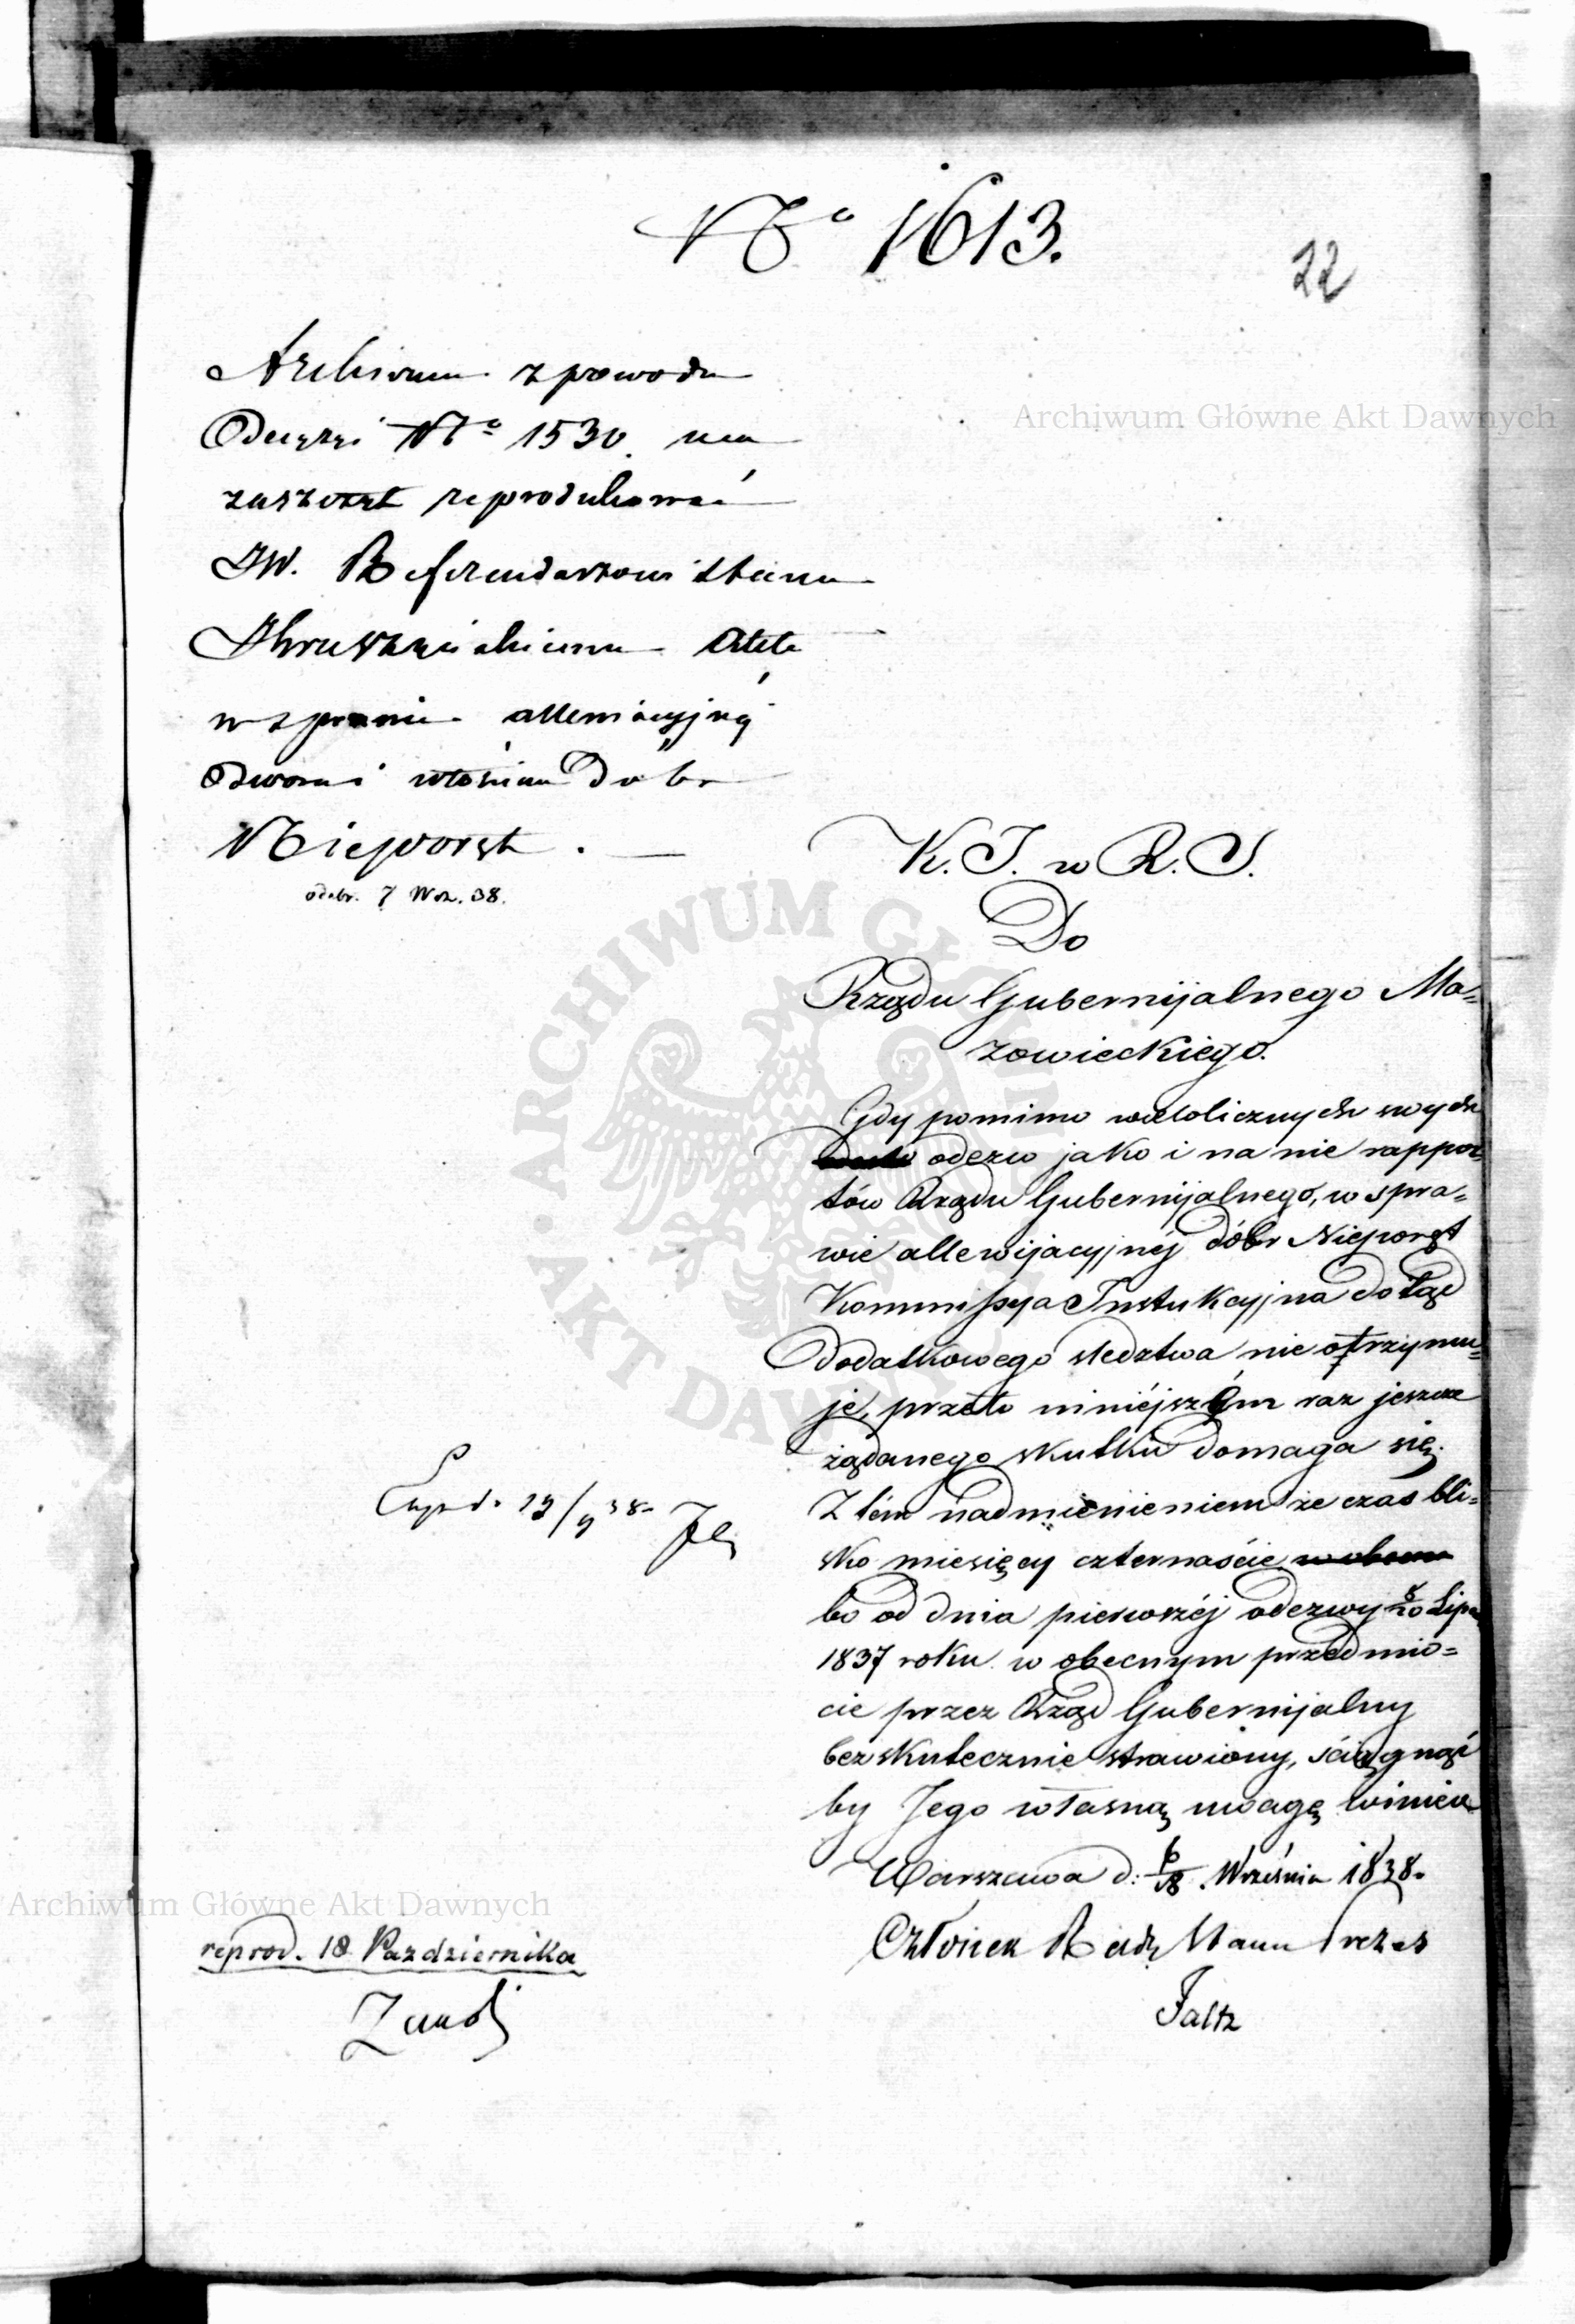 No 1613.
22
Archiwum z powodu
Decyzyi No 1530. ma
zaszczyt reprodukować
JW. Referendarzowi Stanu
Hruszwickiemu Akta
w sprawie allewiacyjnéj
Dworu i włościan Dóbr
Nieporęt. —
odebr. 7 Wrz. 38.
K. I. w R. S.
Do
Rządu Gubernijalnego Ma=
zowieckiego.
Gdy pomimo wielolicznych swych
odezw jako i na nie rappor=
tów Rządu Gubernijalnego, w spra=
wie allewijacyjnéj dóbr Nieporęt
Kommissya Instrukcyjna dotąd
dodatkowego śledztwa nie otrzymu=
je, przeto niniéjszém raz jeszcze
żądanego skutku domaga się.
Z tém nadmienieniem że czas bli=
sko miesięcy czternaście
bo od dnia pierwszéj odezwy 8/20 Lipca
1837 roku w obecnym przedmio=
cie przez Rząd Gubernijalny
bezskutecznie strawiony, ściągnąć
by Jego własną uwagę winien
Warszawa d: 6/18 Września 1838.
Członek Rady Stanu Prezes
Faltz
Exp. d. 19/9 38.
reprod. 18 Pazdziernika
Archiwum Główne Akt Dawnych
Archiwum Główne Akt Dawnych
ARCHIWUM GŁÓWNE AKT DAWNYCH